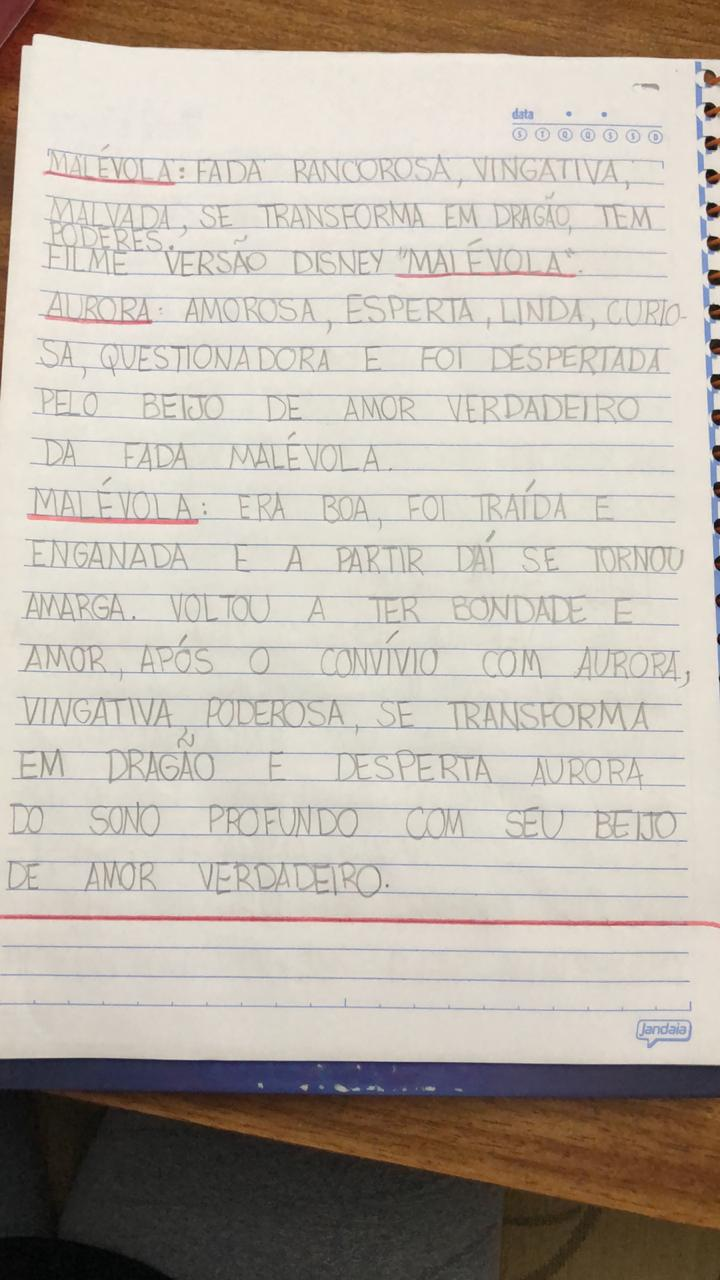 data
S T Q Q S S D
MALÉVOLA: FADA RANCOROSA, VINGATIVA,
MALVADA, SE TRANSFORMA EM DRAGÃO, TEM
PODERES.
FILME VERSÃO DISNEY "MALÉVOLA".
AURORA: AMOROSA, ESPERTA, LINDA, CURIO-
SA, QUESTIONADORA E FOI DESPERTADA
PELO BEIJO DE AMOR VERDADEIRO
DA FADA MALÉVOLA.
MALÉVOLA: ERA BOA, FOI TRAÍDA E
ENGANADA E A PARTIR DAÍ SE TORNOU
AMARGA. VOLTOU A TER BONDADE E
AMOR, APÓS O CONVÍVIO COM AURORA,
VINGATIVA, PODEROSA, SE TRANSFORMA
EM DRAGÃO E DESPERTA AURORA
DO SONO PROFUNDO COM SEU BEIJO
DE AMOR VERDADEIRO.
Jandaia